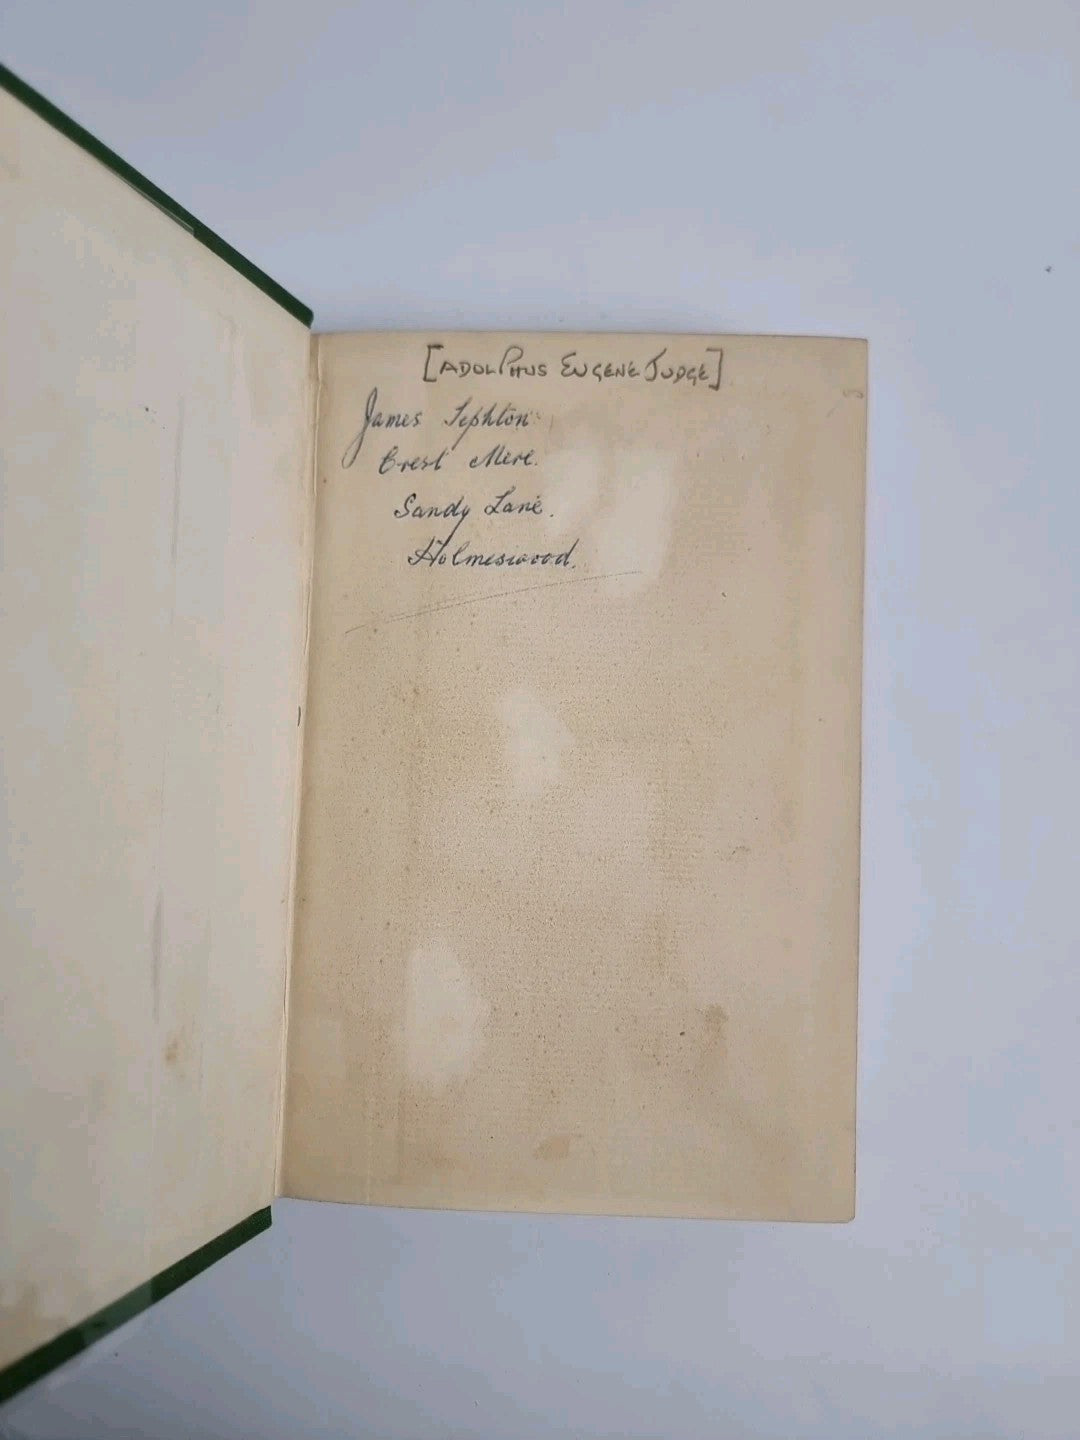 [ADOLPHUS EUGENE JUDGE]
James Sephton
Crest Mere.
Sandy Lane.
Holmeswood.